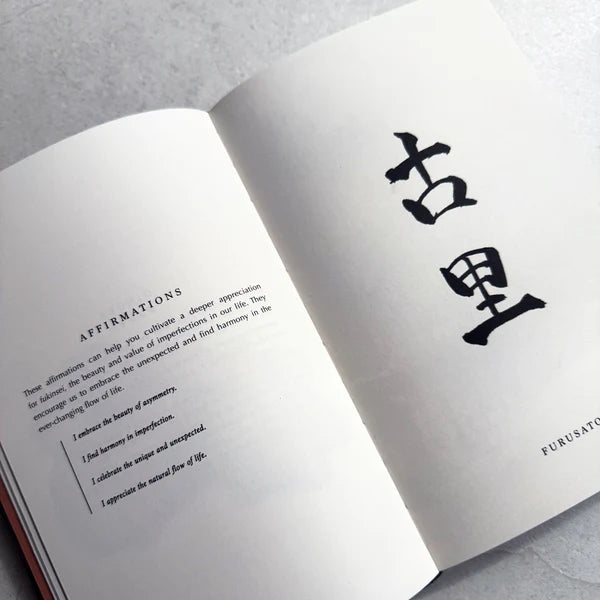 AFFIRMATIONS
These affirmations can help you cultivate a deeper appreciation
for fukinsei, the beauty and value of imperfections in our life. They
encourage us to embrace the unexpected and find harmony in the
ever-changing flow of life.
I embrace the beauty of asymmetry.
I find harmony in imperfection.
I celebrate the unique and unexpected.
I appreciate the natural flow of life.
古
里
FURUSATO